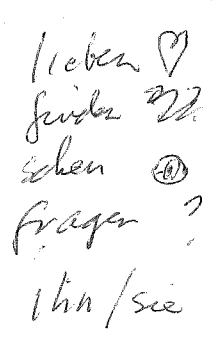 lieben ♡
finden
sehen
fragen ?
ihn/sie